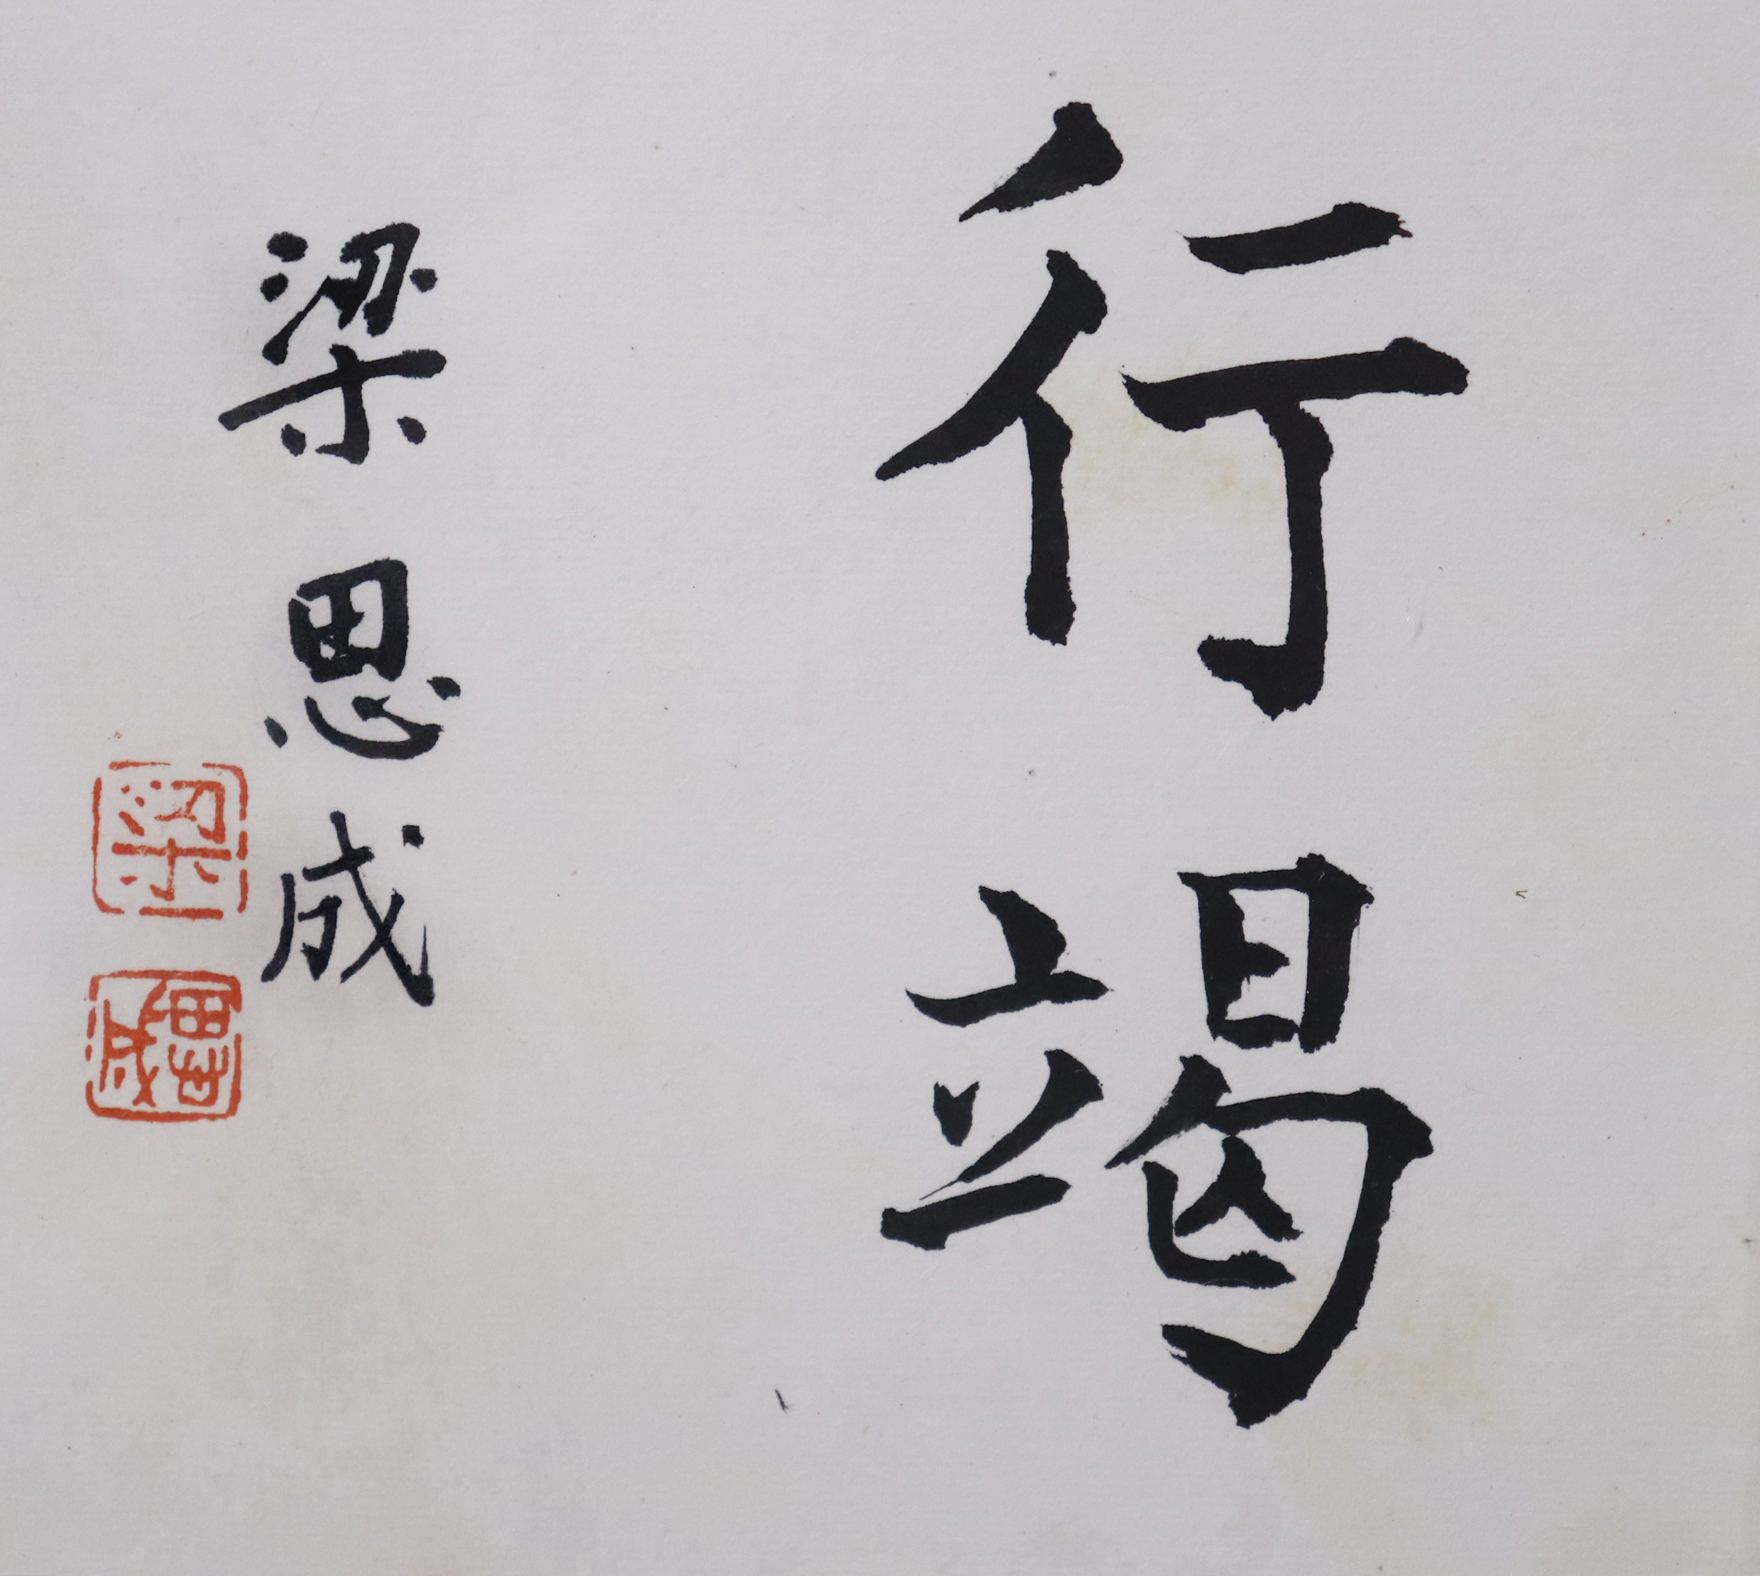 行竭
梁思成
梁
思成